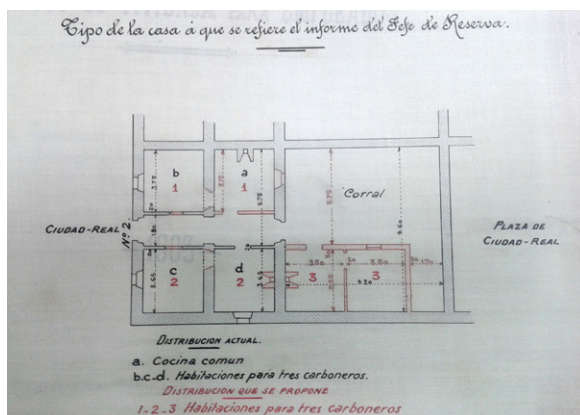 Tipo de la casa á que se refiere el informe del Jefe de Reserva.
b
1
a
1
3.75
3.75
Corral
5.75
9.60
CIUDAD-REAL
Nº 2.
PLAZA DE
CIUDAD-REAL
c
2
d
2
2.65
3.50
3
3
9.20
DISTRIBUCION ACTUAL.
a. Cocina comun
b.c.d. Habitaciones para tres carboneros.
DISTRIBUCION QUE SE PROPONE
1-2-3 Habitaciones para tres carboneros